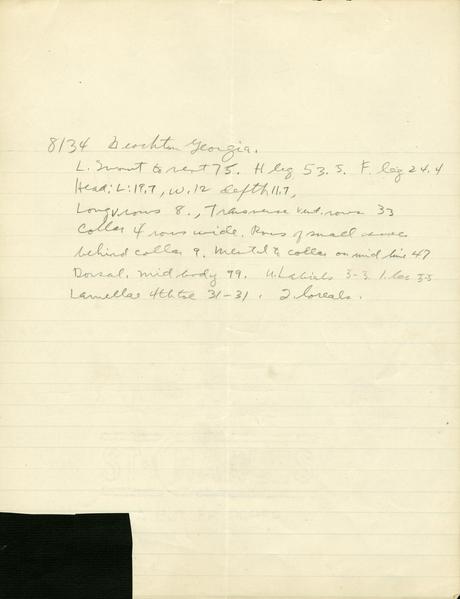 8134 Beachton Georgia.
L. Snout to vent 75. H leg 53.5. F. leg 24.4
Head: L: 19.7, W. 12 depth 11.7,
Long v. rows 8., Transverse vent. rows 33
Collar 4 rows wide. Rows of small
behind collar 9. Mental to collar on mid line 47
Dorsal. mid body 99. U. Labials 3-3 l. lab 3-3
Lamellae 4th toe 31-31. 2 loreals.